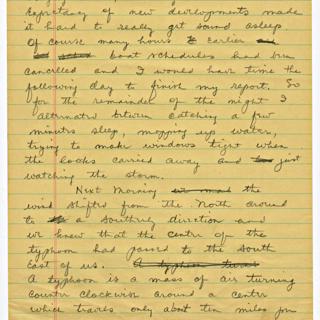 Expectancy of new developments made
it hard to really get sound asleep
Of course many hours earlier
boat schedules had been
cancelled and I would have time the
following day to finish my report. So
for the remainder of the night I
alternated between catching a few
minutes sleep, mopping up water,
trying to make windows tight when
the locks carried away and just
watching the storm.
Next morning the
wind shifted from the North around
to a southerly direction and
we knew that the centre of the
typhoon had passed to the south
East of us. A typhoon turns
A typhoon is a mass of air turning
counter clockwise around a centre
which travels only about ten miles per